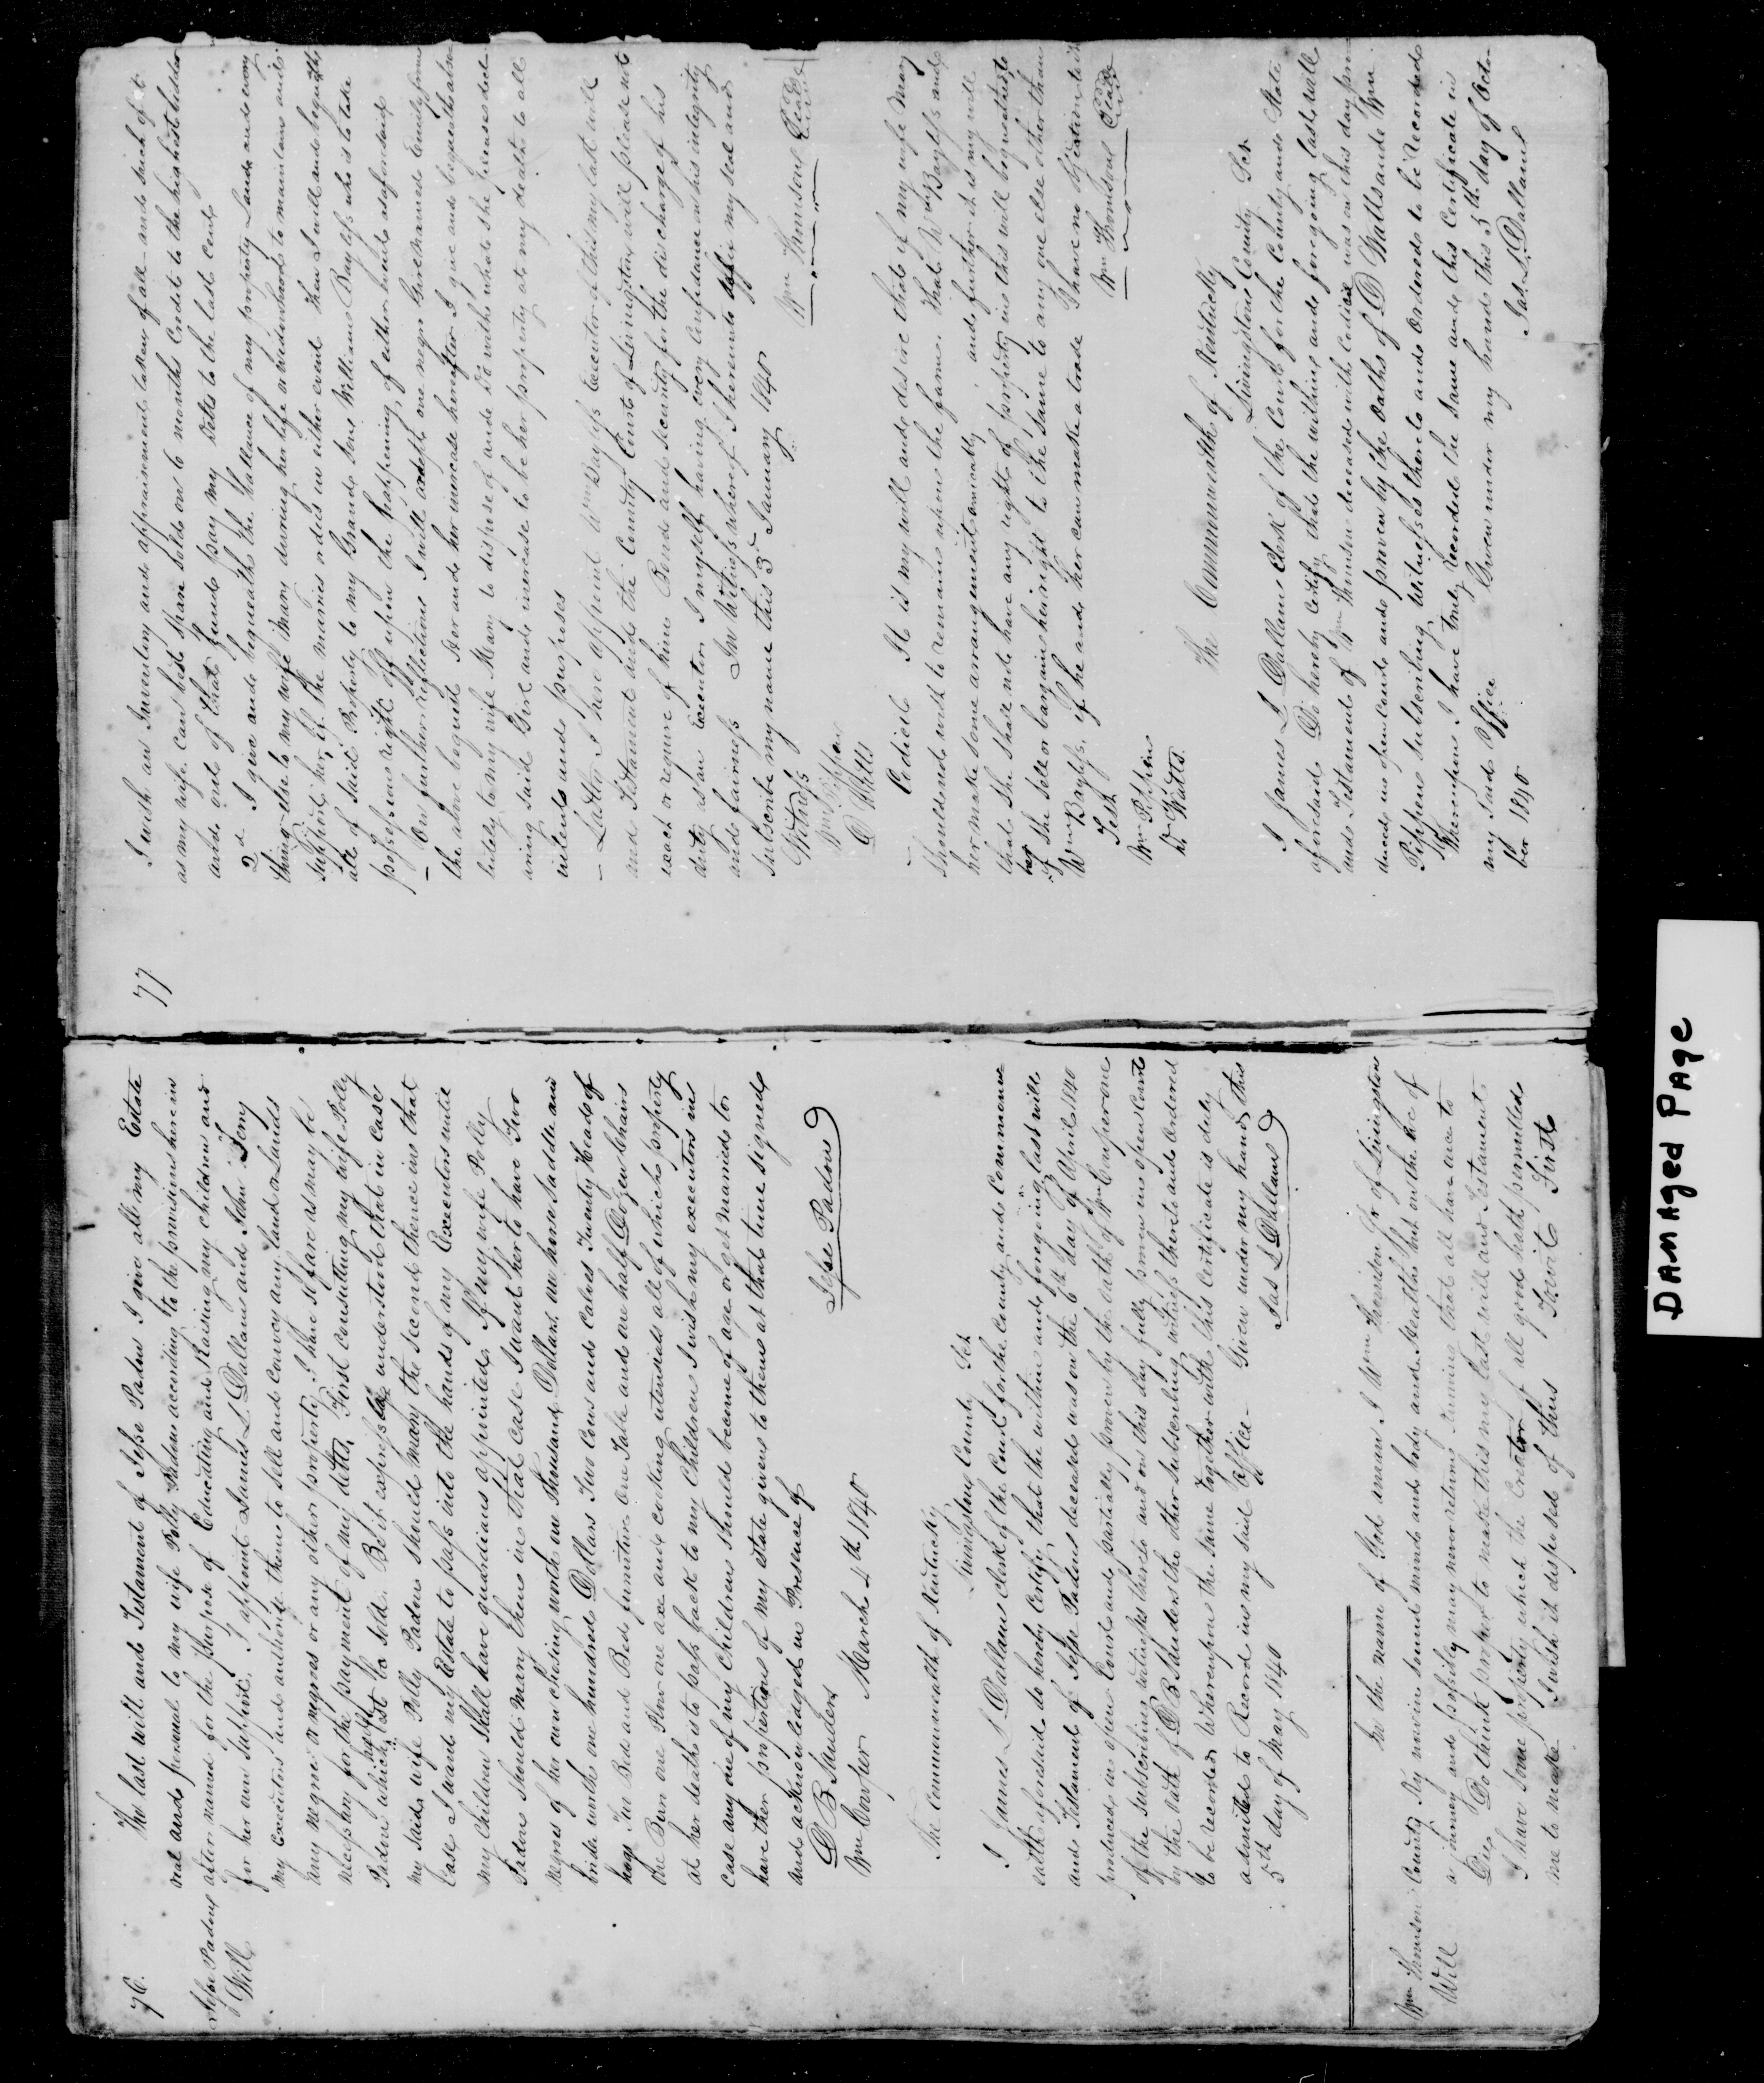 76.
Jesse Padens
Will
The last will and Testament of Jesse Paden I give all my Estate
real and personal to my wife Polly Paden according to the provisions herein
after named for the Purpose of Educating and Raising my children and
for her own support. I appoint James L Dallam and John
my Executors and authorise them to sell and convey any land or Lands
any negroe or negroes or any other property I have so far as may be
necessary for the payment of my debts, First consulting my wife Polly
Paden which ought to be sold. Be it expressly understood that in case
my said wife Polly Paden should marry the second time then in that
case I want my Estate to pass into the hands of my Executors until
my children shall have guardians appointed. If my wife Polly
Paden should marry then in that case I want her to have Two
negroes of her own choosing worth one Thousand Dollars one horse saddle and
bridle worth one hundred Dollars Two Cows and Calves Twenty Head of
hogs Two Bed and Bed furniture One Table and one half Dozen Chairs
one Plow one axe and cooking utensils all of which property
at her death is to pass back to my Children I wish my executors in
case any one of my Children should become of age or get married to
have ther proportions of my estate given to them at that time signed
and acknowledged in Presence of
D B Sanders
Wm Cowper March 4th 1840
Jesse Paden
The Commonwealth of Kentucky
Livingston County Sct
I James L Dallam Clerk of the Court for the County and Common
wealth aforesaid do hereby Certify that the within and foregoing last will
and Testament of Jesse Paden deceased was on the 6th day of April 1840
produced in open Court and partially proven by the oath of Wm Cowper one
of the subscribing witnesses thereto and on this day fully proven in open Court
by the oath of D B Sanders the other subscribing witness thereto and ordered
to be recorded Whereupon the same together with this Certificate is duly
admitted to Record in my said office Given under my hand this
5th day of May 1840
Jas L Dallam
Wm Thomson
Will
In the name of God amen I Wm Thomson Sr of Livingston
County Ky now in sound mind and body and Health but on the Eve of
a journey and possibly may never return, knowing that all have once to
Die, Do think proper to make this my last will and Testament.
I have some property which the Creator of all good hath permitted
me to make I wish it disposed of thus Towit First
77
I wish an Inventory and appraisement taken of all and such of it
as my wife can best spare sold on 6 months Credit to the highest bidder
and out of that fund pay my Debts to the last cent
2d I give and bequeath the ballance of my property Lands and every
thing else to my wife Mary during her life or widowhood to maintain and
support her, if She marries or dies in either event Then I will and bequeath
all of said Property to my Grand Son William Bayless who is to take
possession right off upon the happening of either event aforesaid
On further reflections I will except one negro Girl named Emily from
the above bequest Her and her increase hereafter I give and bequeath abso
lutely to my wife Mary to dispose of and Do with what she pleases decl
aring said Girl and increase to be her property at my death to all
intents and purposes
Lastly I here appoint Wm Bayless Executor of this my last will
and Testament and the County Court of Livingston will please not
exact or require of him Bond and security for the discharge of his
duty as an Executor I myself having every confidence in his integrity
and fairness In Witness whereof I hereunto affix my seal and
subscribe my name this 3d January 1840
Witness
Wm Pippin
D Watts
Wm Thomson Seal
Codicil It is my will and desire that if my wife Mary
should wish to remain upon the farm. That Wm Bayless and
her make some arrangement amicably, and further it is my will
that she shall not have any right of property in this will bequeathed to
her if she sell or bargain her right to the same to any one else other than
Wm Bayless, if he and her can make a trade I have no objection to it
Test
Wm Pippin
D Watts
Wm Thomson Seal
The Commonwealth of Kentucky
Livingston County Sct
I James L Dallam Clerk of the Court for the County and State
aforesaid Do hereby Certify that the within and foregoing last will
and Testament of Wm Thomson deceased with Codicil was on this day pro
duced in open Court and proven by the Oaths of D Watts and Wm
Pippin subscribing Witnesses thereto and Ordered to be recorded
Whereupon I have truly recorded the same and this Certificate in
my said Office Given under my hand this 5th day of Octo
ber 1840
Jas L Dallam
DAMAGED PAGE